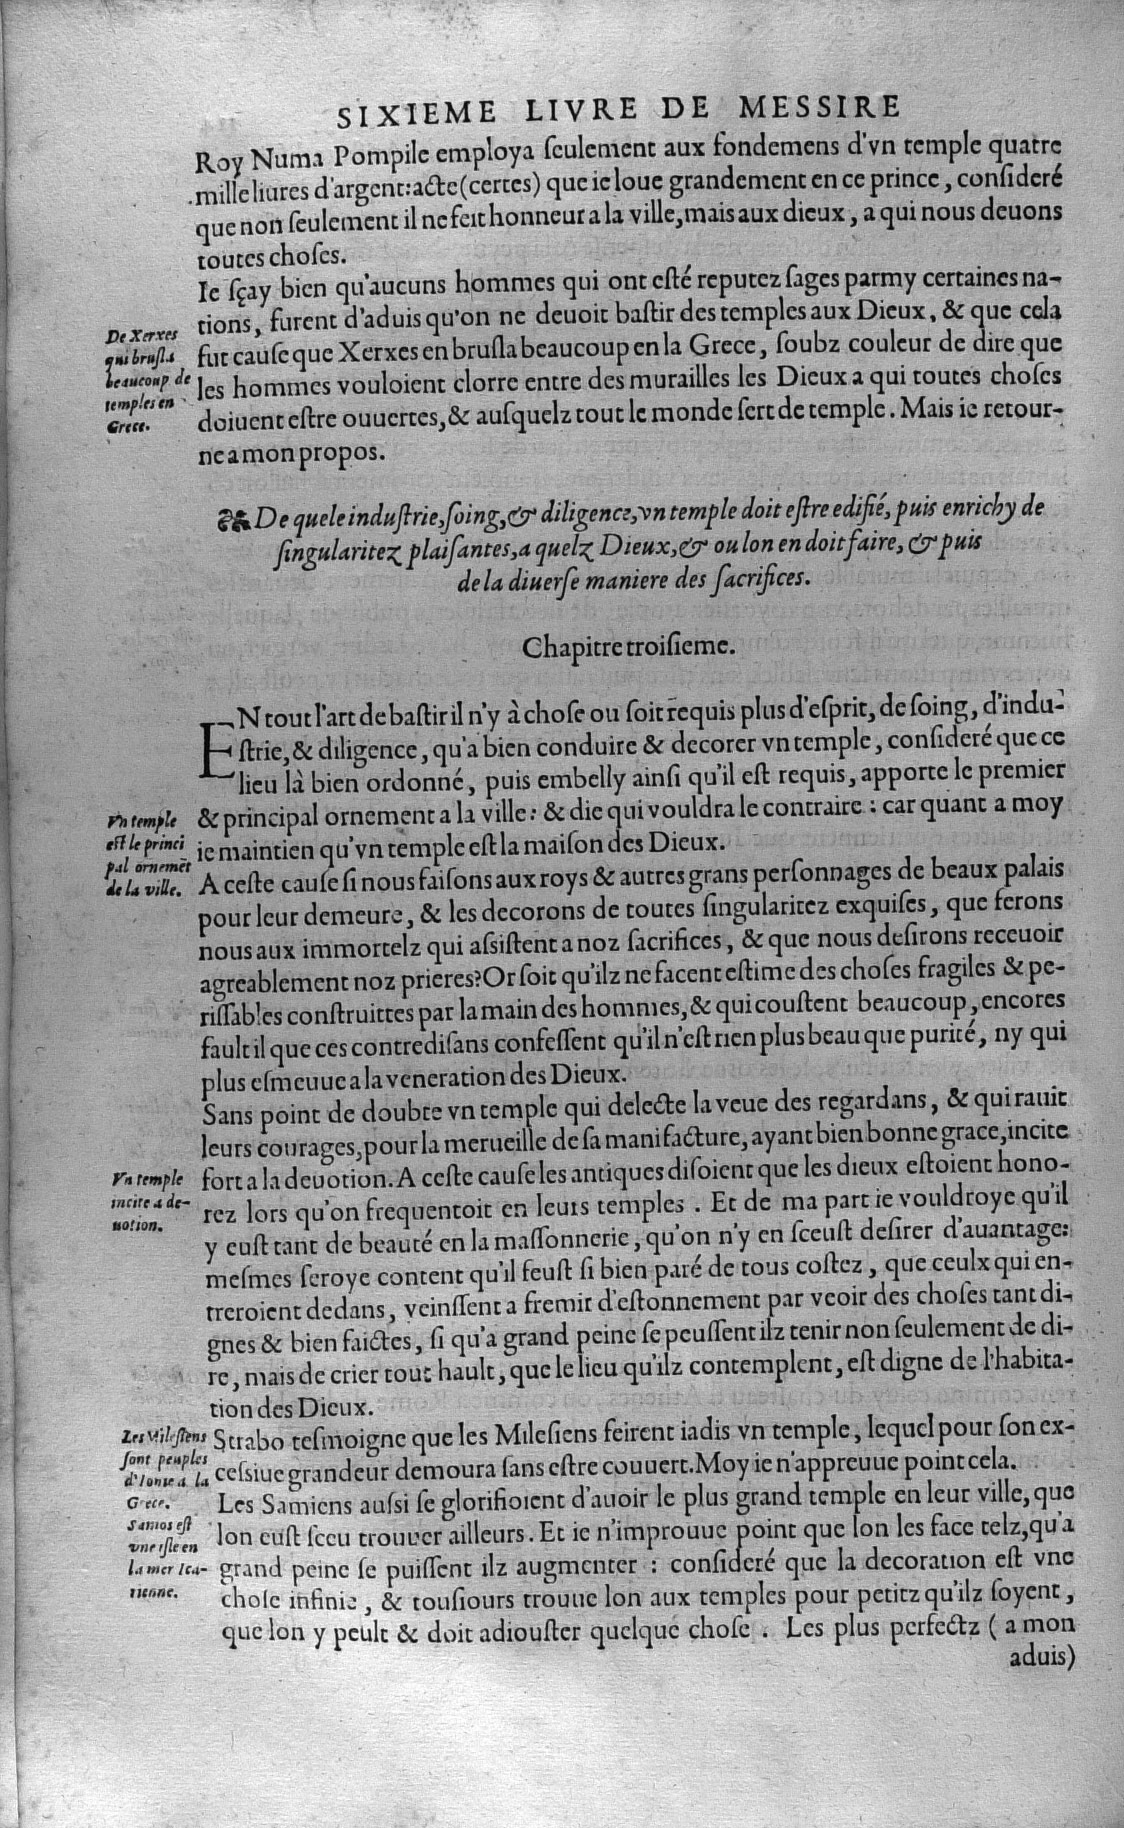 SIXIEME LIVRE DE MESSIRE
Roy Numa Pompile employa ſeulement aux fondemens d'vn temple quatre
mille liures d'argent: acte (certes) que ie loue grandement en ce prince, conſideré
que non ſeulement il ne feit honneur a la ville, mais aux dieux, a qui nous deuons
toutes choſes.
Ie ſçay bien qu'aucuns hommes qui ont eſté reputez ſages parmy certaines na-
tions, furent d'aduis qu'on ne deuoit baſtir des temples aux Dieux, & que cela
fut cauſe que Xerxes en bruſla beaucoup en la Grece, ſoubz couleur de dire que
les hommes vouloient clorre entre des murailles les Dieux a qui toutes choſes
doiuent eſtre ouuertes, & auſquelz tout le monde ſert de temple. Mais ie retour-
ne a mon propos.
De Xerxes
qui bruſla
beaucoup de
temples en
Grece.
De quele induſtrie, ſoing, & diligence, vn temple doit eſtre edifié, puis enrichy de
ſingularitez plaiſantes, a quelz Dieux, & ou lon en doit faire, & puis
de la diuerſe maniere des ſacrifices.
Chapitre troiſieme.
EN tout l'art de baſtir il n'y à choſe ou ſoit requis plus d'eſprit, de ſoing, d'indu-
ſtrie, & diligence, qu'a bien conduire & decorer vn temple, conſideré que ce
lieu là bien ordonné, puis embelly ainſi qu'il eſt requis, apporte le premier
& principal ornement a la ville: & die qui vouldra le contraire: car quant a moy
ie maintien qu'vn temple eſt la maiſon des Dieux.
Vn temple
eſt le princi
pal ornemēt
de la ville.
A ceſte cauſe ſi nous faiſons aux roys & autres grans perſonnages de beaux palais
pour leur demeure, & les decorons de toutes ſingularitez exquiſes, que ferons
nous aux immortelz qui aſſiſtent a noz ſacrifices, & que nous deſirons receuoir
agreablement noz prieres? Or ſoit qu'ilz ne facent eſtime des choſes fragiles & pe-
riſſables conſtruittes par la main des hommes, & qui couſtent beaucoup, encores
fault il que ces contrediſans confeſſent qu'il n'eſt rien plus beau que purité, ny qui
plus eſmeuue a la veneration des Dieux.
Sans point de doubte vn temple qui delecte la veue des regardans, & qui rauit
leurs courages, pour la merueille de ſa manifacture, ayant bien bonne grace, incite
fort a la deuotion. A ceſte cauſe les antiques diſoient que les dieux eſtoient hono-
rez lors qu'on frequentoit en leurs temples. Et de ma part ie vouldroye qu'il
y euſt tant de beauté en la maſſonnerie, qu'on n'y en ſceuſt deſirer d'auantage:
meſmes ſeroye content qu'il feuſt ſi bien paré de tous coſtez, que ceulx qui en-
treroient dedans, veinſſent a fremir d'eſtonnement par veoir des choſes tant di-
gnes & bien faictes, ſi qu'a grand peine ſe peuſſent ilz tenir non ſeulement de di-
re, mais de crier tout hault, que le lieu qu'ilz contemplent, eſt digne de l'habita-
tion des Dieux.
Vn temple
incite a de-
uotion.
Strabo teſmoigne que les Mileſiens feirent iadis vn temple, lequel pour ſon ex-
ceſſiue grandeur demoura ſans eſtre couuert. Moy ie n'appreuue point cela.
Les Samiens auſſi ſe glorifioient d'auoir le plus grand temple en leur ville, que
lon euſt ſceu trouuer ailleurs. Et ie n'improuue point que lon les face telz, qu'a
grand peine ſe puiſſent ilz augmenter: conſideré que la decoration eſt vne
choſe infinie, & touſiours trouue lon aux temples pour petitz qu'ilz ſoyent,
que lon y peult & doit adiouſter quelque choſe. Les plus perfectz (a mon
aduis)
Les Mileſiens
ſont peuples
d'Ionie a la
Grece.
Samos eſt
vne iſle en
la mer Ica-
rienne.